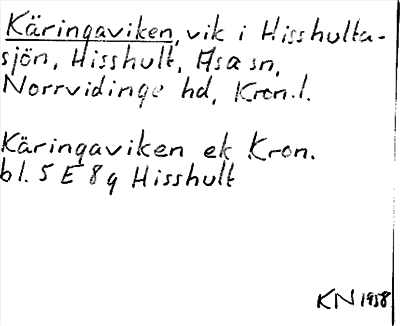 Käringaviken, vik i Hisshulta-
sjön, Hisshult, Asa sn,
Norrvidinge hd, Kron.l.
Käringaviken ek Kron.
bl. 5 E 8 g Hisshult
KN 1958